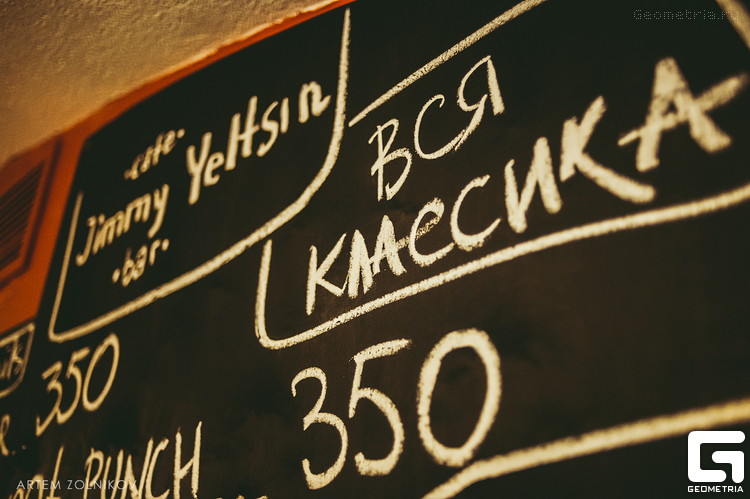 Geometria.ru
·cafe·
Jimmy Yeltsin
·bar·
ВСЯ
КЛАССИКА
350
350
PUNCH
ARTEM ZOLNIKOV
GEOMETRIA